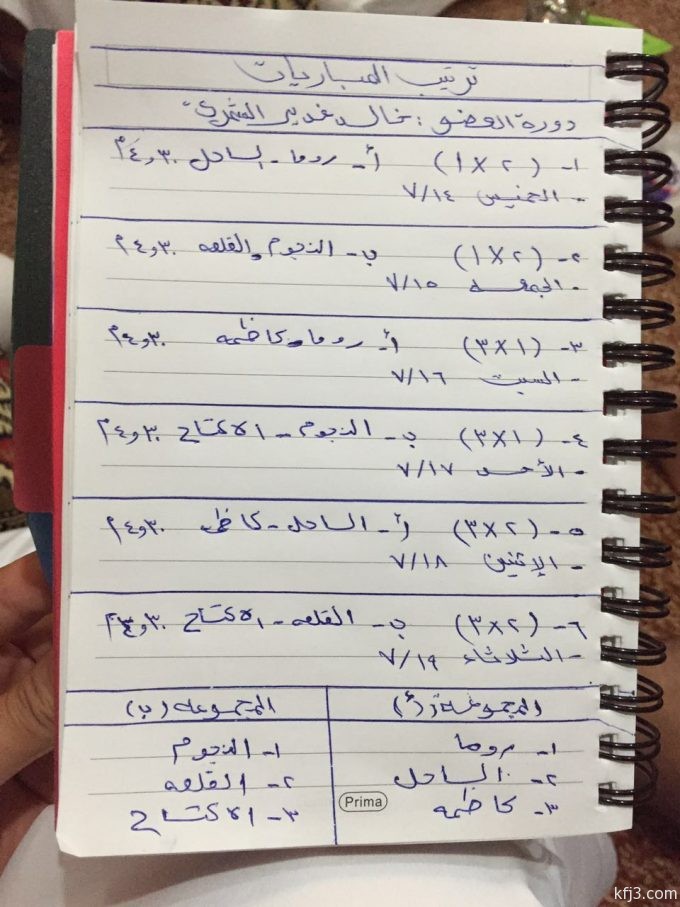 ترتيب المباريات
دورة العضو : خالد غدير الشمري
١- (٢×١) أ- روما - الساحل ٤،٣٠م
- الخميس ٧/١٤
٢- (٢×١) ب- النجوم والقلعه ٤،٣٠م
- الجمعه ٧/١٥
٣- (١×٣) أ- روما - كاظمه ٤،٣٠م
- السبت ٧/١٦
٤- (١×٣) ب- النجوم - الاكتساح ٤،٣٠م
- الأحد ٧/١٧
٥- (٢×٣) أ- الساحل - كاظمه ٤،٣٠م
- الإثنين ٧/١٨
٦- (٢×٣) ب- القلعه - الاكتساح
- الثلاثاء ٧/١٩
المجموعة (أ) المجموعه (ب)
١- روما ١- النجوم
٢- الساحل ٢- القلعه
٣- كاظمه ٣- الاكتساح
Prima
kfj3.com